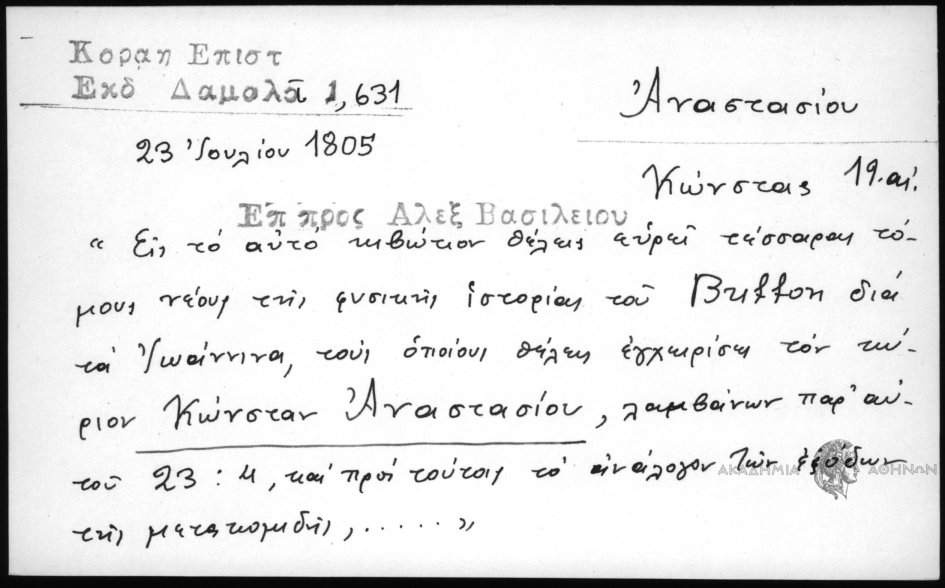 Κοραη Επιστ
Εκδ Δαμαλᾶ 1, 631
Ἀναστασίου
23 Ἰουλίου 1805
Κώνστας 19. αἰ.
Επ προς Αλεξ Βασιλειου
« Εἰς τό αὐτό κιβώτιον θέλεις εὑρεῖ τέσσαρας τό-
μους νέους τῆς φυσικῆς ἱστορίας τοῦ Buffon διά
τά Ἰωάννινα, τούς ὁποίους θέλεις ἐγχειρίσει τόν κύ-
ριον Κώνσταν Ἀναστασίου, λαμβάνων παρ' αὐ-
τοῦ 23 : 4, καί πρός τούτοις τό ἀνάλογον τῶν ἐξόδων
τῆς μετακομιδῆς, ...... »
ΑΚΑΔΗΜΙΑ ΑΘΗΝΩΝ